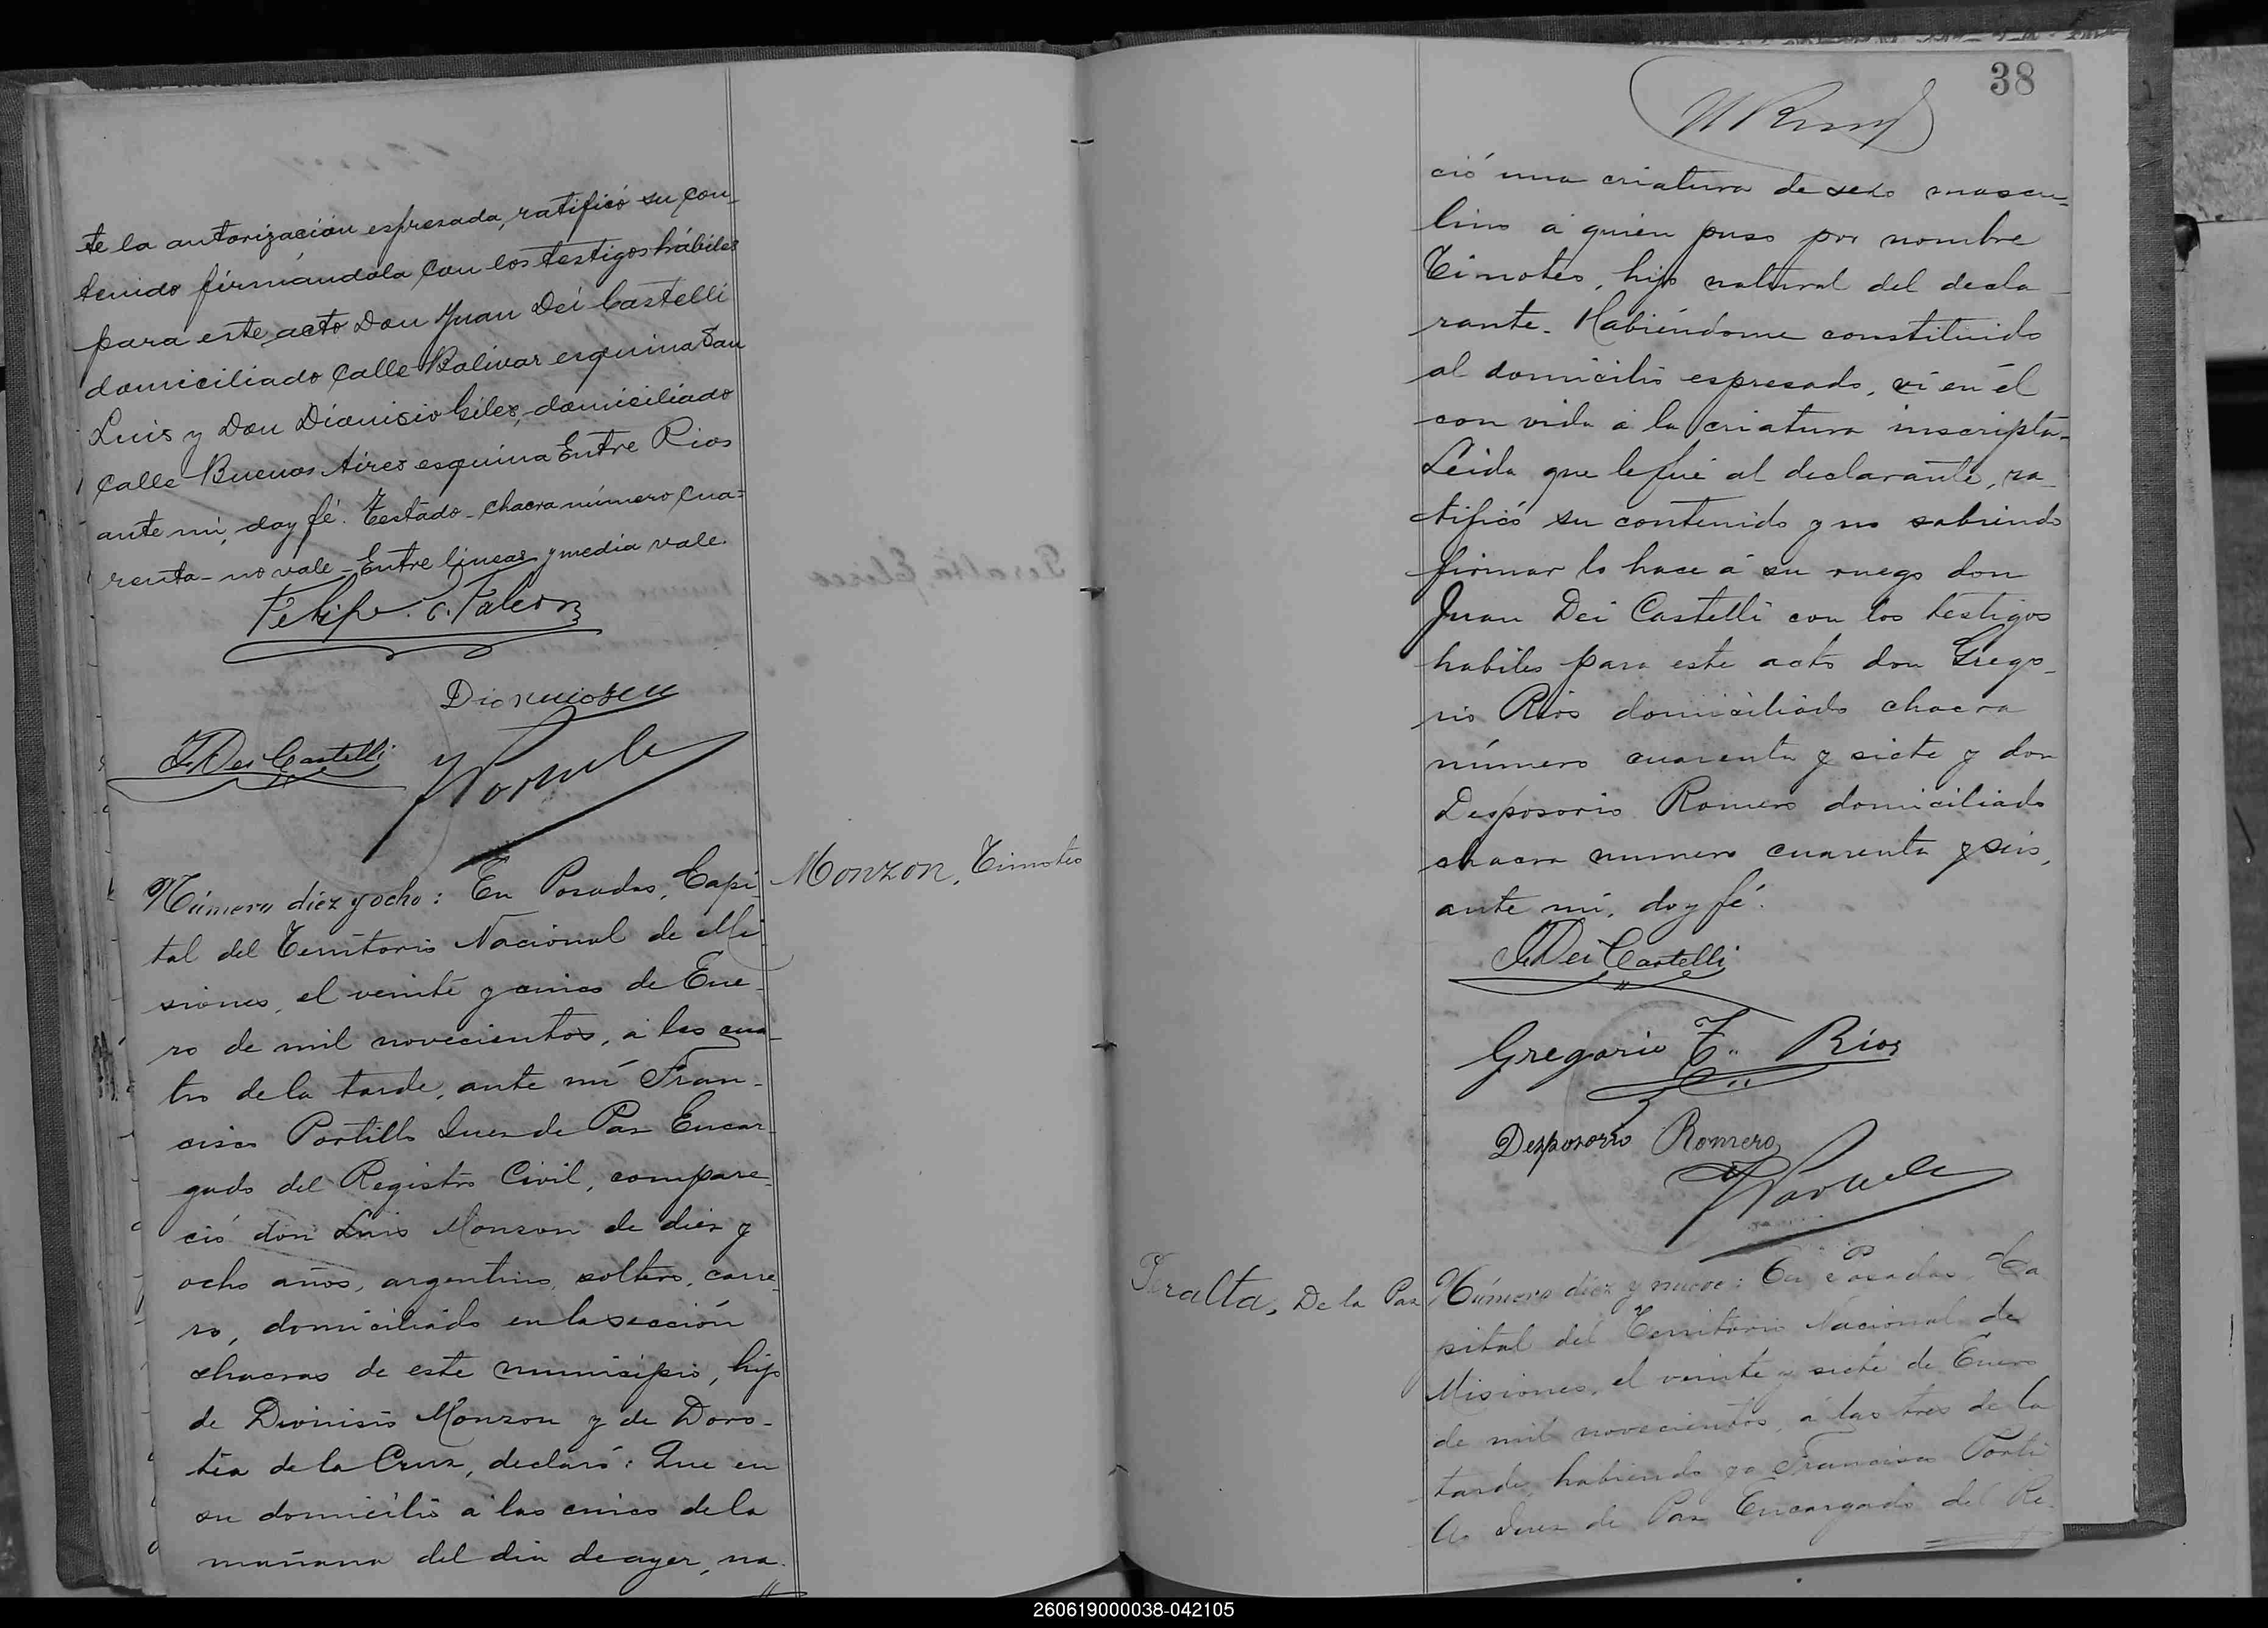 te la autorización espresada, ratificó su con-
tenido firmándola con los testigos hábiles
para este acto Don Juan Dei Castelli
domiciliado calle Bolivar esquina San
Luis y Don Dionisio Giles, domiciliado
calle Buenos Aires esquina Entre Rios
ante mi, doy fé. Testado - chacra número cua-
renta - no vale - Entre lineas y media vale.
Felipe C. Falcon
Dionicio
J. Dei Castelli
Número diez y ocho: En Posadas, Capi-
tal del Territorio Nacional de Mi
siones, el veinte y cinco de Ene-
ro de mil novecientos, á las cua-
tro de la tarde, ante mí Fran-
cisco Portillo Juez de Paz Encar-
gado del Registro Civil, compare-
ció don Luis Monzon de diez y
ocho años, argentino, soltero, carre-
ro, domiciliado en la sección
chacras de este municipio, hijo
de Dionisio Monzon y de Doro-
tea de la Cruz, declaró: Que en
su domicilio a las cinco de la
mañana del dia de ayer, na-
Monzon, Timoteo
38
ció una criatura de sexo mascu-
lino á quien puso por nombre
Timoteo, hijo natural del decla-
rante. Habiéndome constituido
al domicilio espresado, ví en él
con vida á la criatura inscripta.
Leida que le fué al declarante, ra-
tificó su contenido y no sabiendo
firmar lo hace á su ruego don
Juan Dei Castelli con los testigos
habiles para este acto don Grego-
rio Rios domiciliado chacra
número cuarenta y siete y don
Desposorio Romero domiciliado
chacra numero cuarenta y seis,
ante mí, doy fé.
J. Dei Castelli
Gregorio T. Rios
Desposorio Romero
Peralta, De la Paz
Número diez y nueve: En Posadas, Ca
pital del Territorio Nacional de
Misiones, el veinte y siete de Enero
de mil novecientos, á las tres de la
tarde, habiendo yo Francisco Porti
llo Juez de Paz Encargado del Re-
260619000038-042105